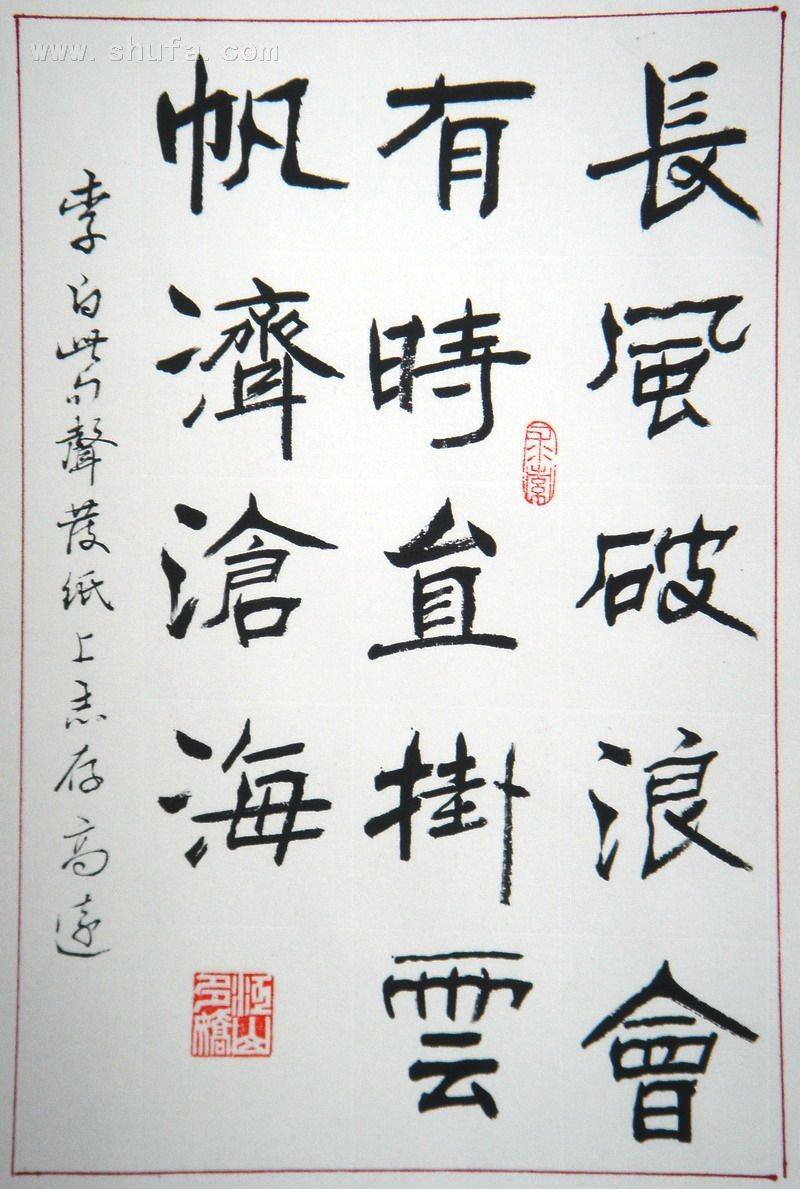 www.shufa.com
長風破浪會
有時直掛雲
帆濟滄海
李白此句聲發紙上志存高遠
江山多嬌